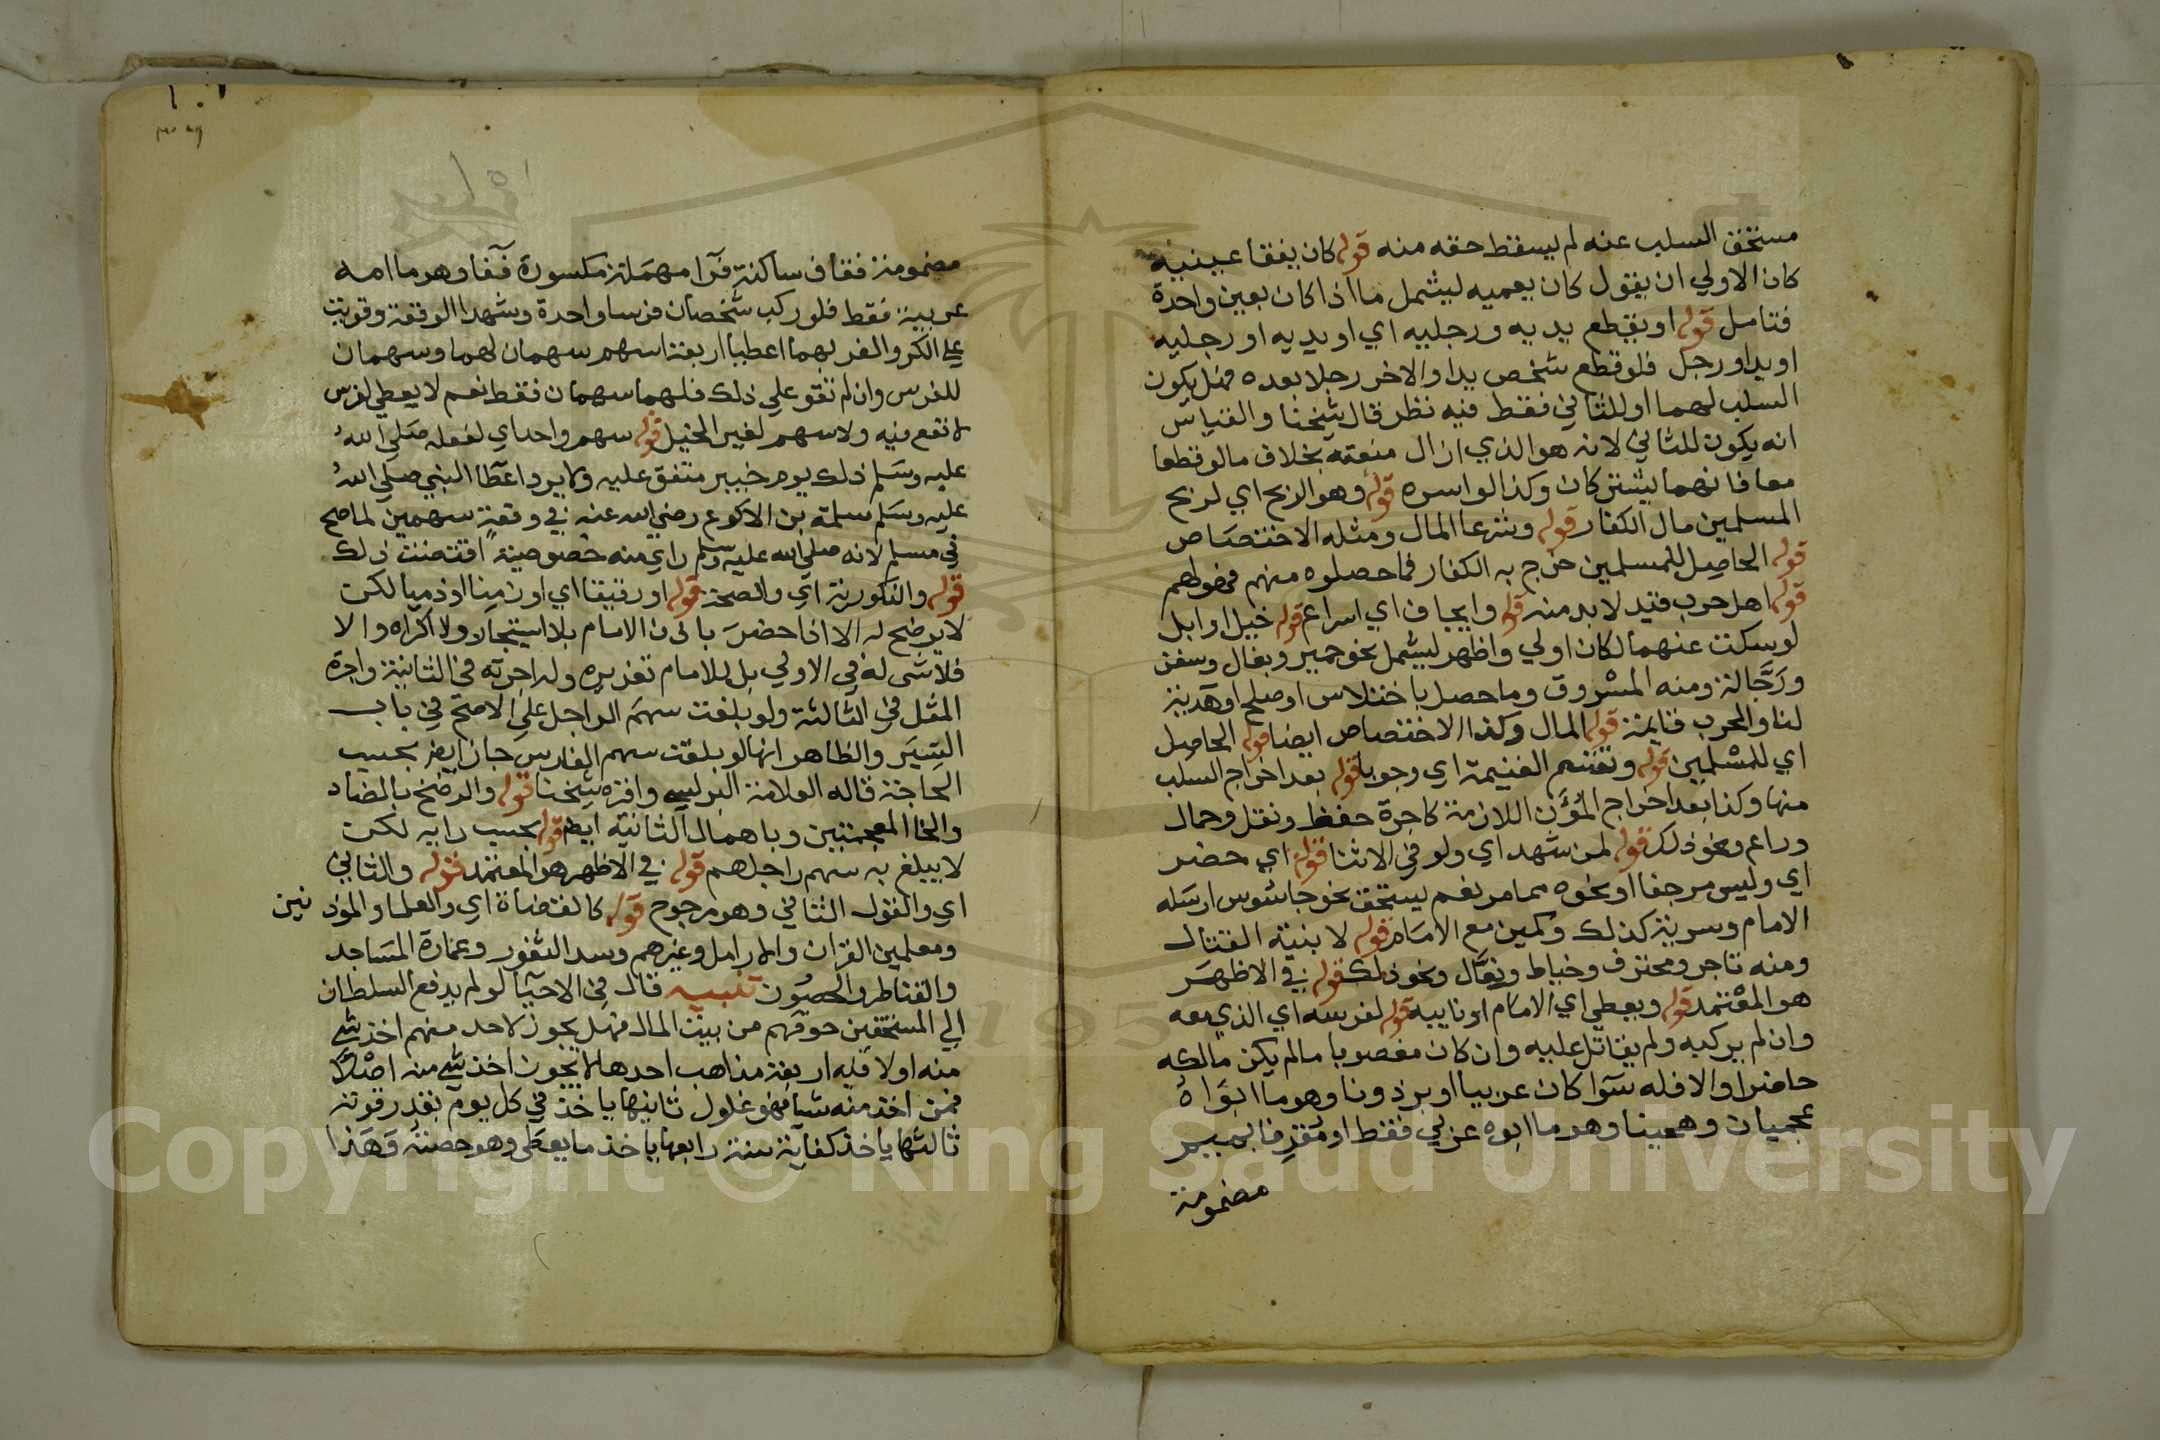 مستحق السلب عنه لم يسقط حقه منه قوله كان يفقأ عينيه
كان الاولي ان يقول كان يعميه ليشمل ما اذا كان بعين واحدة
فتامل قوله او يقطع يديه ورجليه اي او يديه او رجليه
او يد او رجل فلو قطع شخص يدا والاخر رجلا بعده فهل يكون
السلب لهما او للثاني فقط فيه نظر قال شيخنا والقياس
انه يكون للثاني لانه هو الذي ازال منعته بخلاف ما لو قطعا
معا فانهما يشتركان وكذا لو اسره قوله وهو الربح اي لربح
المسلمين مال الكفار قوله وشرعا المال ومثله الاختصاص
قوله الحاصل للمسلمين خرج به الكفار فما حصلوه منهم فهو لهم
قوله اهل حرب قيد لابد منه قوله وايجاف اي اسراع قوله خيل او ابل
لو سكت عنهما لكان اولي واظهر ليشمل نحو حمير وبغال وسفن
ورجالة ومنه المسروق وما حصل باختلاس او صلح او هدية
لنا والحرب قايمة قوله المال وكذا الاختصاص ايضا قوله الحاصل
اي للمسلمين قوله وتقسم الغنيمة اي وجوبا قوله بعد اخراج السلب
منها وكذا بعد اخراج المؤن اللازمة كاجرة حفظ ونقل وحمال
وراع ونحو ذلك قوله لمن شهد اي ولو في الاثنا قوله اي حضر
اي وليس مرجفا او نحوه مما مر نعم يستحق نحو جاسوس ارسله
الامام وسرية كذلك وكمين مع الامام قوله لا بنية القتال
ومنه تاجر ومحترف وخياط وبقال ونحو ذلك قوله في الاظهر
هو المعتمد قوله ويعطي اي الامام او نايبه قوله لفرسه اي الذي معه
وان لم يركبه ولم يقاتل عليه وان كان مغصوبا ما لم يكن مالكه
حاضرا والا فله سوا كان عربيا او برذونا وهو ما ابواه
عجميان وهجينا وهو ما ابوه عربي فقط او مقرفا بميم
مضمومة
مضمومة فقاف ساكنة فرا مهملة مكسورة ففا وهو ما امه
عربية فقط فلو ركب شخصان فرسا واحدة وشهدا الوقعة وقويت
علي الكر والفر بهما اعطيا اربعة اسهم سهمان لهما وسهمان
للفرس وان لم تقو علي ذلك فلهما سهمان فقط نعم لا يعطي لفرس
لا نفع فيه ولا سهم لغير الخيل قوله سهم واحد اي لفعله صلي الله
عليه وسلم ذلك يوم خيبر متفق عليه ولا يرد اعطا النبي صلي الله
عليه وسلم سلمة بن الاكوع رضي الله عنه في وقعة سهمين لما صح
في مسلم لانه صلي الله عليه وسلم راي منه خصوصية اقتضت ذلك
قوله والذكورية اي والصحة قوله او رقيقا اي او زمنا او ذميا لكن
لا يرضخ له الا اذا حضر باذن الامام بلا استيجار ولا اكراه والا
فلا شي له في الاولي بل للامام تعزيره وله اجرته في الثانية واجرة
المثل في الثالثة ولو بلغت سهم الراجل علي الاصح في باب
السير والظاهر انها لو بلغت سهم الفارس جاز ايض بحسب
الحاجة قاله العلامة البرلسي واقره شيخنا قوله والرضخ بالضاد
والخا المعجمتين وباهمال الثانية ايض قوله بحسب رايه لكن
لا يبلغ به سهم راجلهم قوله في الاظهر هو المعتمد قوله والثاني
اي والقول الثاني وهو مرجوح قوله كالقضاة اي والعلما والموذنين
ومعلمين القران والارامل وغيرهم وسد الثغور وعمارة المساجد
والقناطر والحصون تنبيه قال في الاحيا لو لم يدفع السلطان
الي المستحقين حقوقهم من بيت المال فهل يجوز لاحد منهم اخذ شي
منه اولا فيه اربعة مذاهب احدها لا يجوز اخذ شي منه اصلا
فمن اخذ منه شيا فهو غلول ثانيها ياخذ في كل يوم بقدر قوته
ثالثها ياخذ كفاية سنة رابعها ياخذ ما يعطي وهو حصته وهذا
Copyright © King Saud University